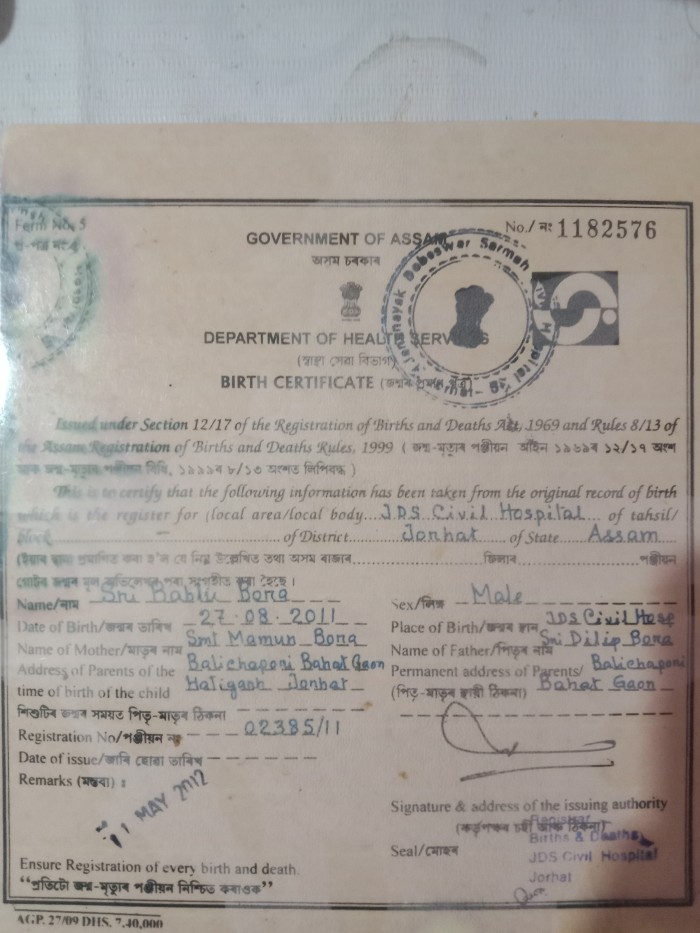 Form No. 5
No./ নং 1182576
GOVERNMENT OF ASSAM
অসম চৰকাৰ
DEPARTMENT OF HEALTH SERVICES
(স্বাস্থ্য সেৱা বিভাগ)
BIRTH CERTIFICATE (জন্মৰ প্ৰমাণ পত্ৰ)
Jananayak Debeswar Sarmah
Issued under Section 12/17 of the Registration of Births and Deaths Act, 1969 and Rules 8/13 of
the Assam Registration of Births and Deaths Rules, 1999 ( জন্ম-মৃত্যুৰ পঞ্জীয়ন আইন ১৯৬৯ৰ ১২/১৭ অংশ
আৰু জন্ম-মৃত্যুৰ পঞ্জীয়ন বিধি, ১৯৯৯ৰ ৮/১৩ অংশত লিপিবদ্ধ )
This is to certify that the following information has been taken from the original record of birth
which is the register for (local area/local body JDS Civil Hospital of tahsil/
block of District Jorhat of State Assam
(ইয়াৰ দ্বাৰা প্ৰমাণিত কৰা হ'ল যে নিম্ন উল্লেখিত তথ্য অসম ৰাজ্যৰ জিলাৰ পঞ্জীয়ন
গোটৰ জন্মৰ মূল অভিলেখৰ পৰা সংগৃহীত কৰা হৈছে।
Name/নাম Sri Bablu Bora Sex/লিঙ্গ Male
Date of Birth/জন্মৰ তাৰিখ 27.08.2011 Place of Birth/জন্মৰ স্থান JDS Civil Hosp
Name of Mother/মাতৃৰ নাম Smt Mamun Bora Name of Father/পিতৃৰ নাম Sri Dilip Bora
Address of Parents of the Balichapori Bahat Gaon Permanent address of Parents/ Balichapori
time of birth of the child Hatigarh Jorhat (পিতৃ-মাতৃৰ স্থায়ী ঠিকনা) Bahat Gaon
শিশুটিৰ জন্মৰ সময়ত পিতৃ-মাতৃৰ ঠিকনা
Registration No/পঞ্জীয়ন নং 02385/11
Date of issue/জাৰি হোৱা তাৰিখ
Remarks (মন্তব্য) :
11 MAY 2012
Signature & address of the issuing authority
(কৰ্তৃপক্ষৰ চহী আৰু ঠিকনা)
Registrar
Births & Deaths
Seal/মোহৰ JDS Civil Hospital
Jorhat
Ensure Registration of every birth and death.
“প্ৰতিটো জন্ম-মৃত্যুৰ পঞ্জীয়ন নিশ্চিত কৰাওক”
AGP. 27/09 DHS. 7,40,000